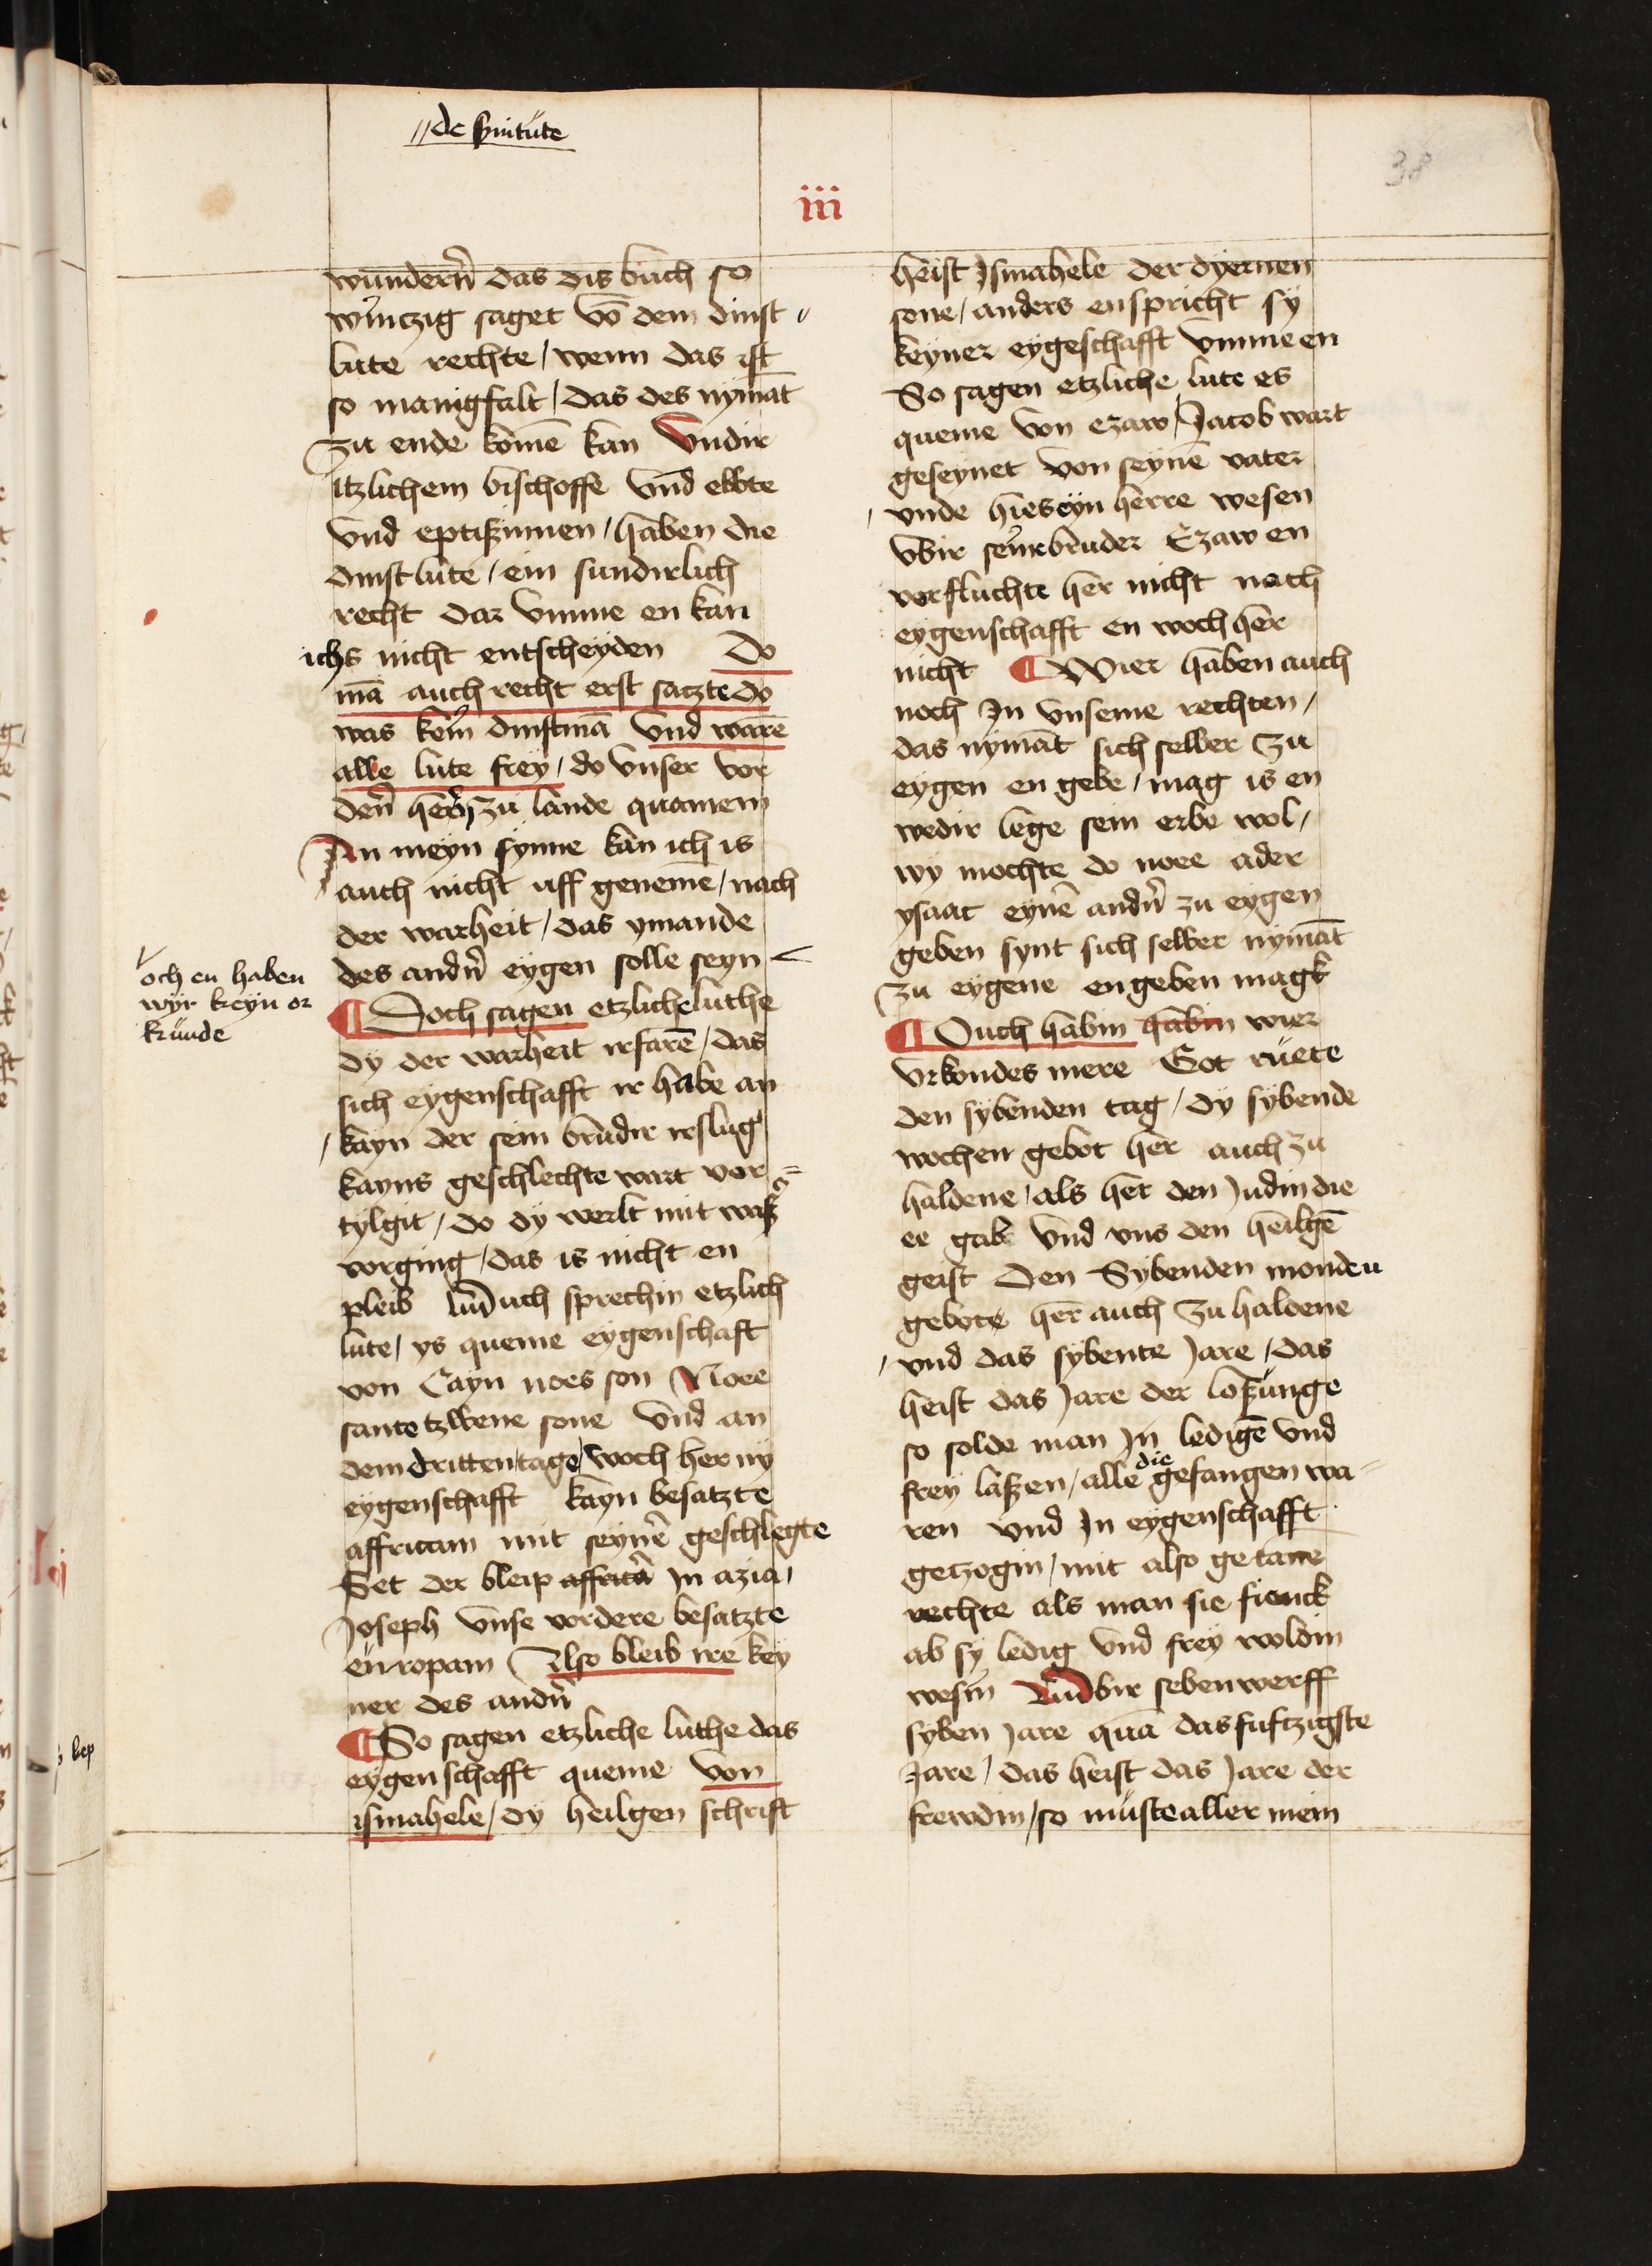 de seruitute
38
iii
wundern̄ das dis buch so
winczig saget vō dem dinst
lute rechte / wenn das ist
so manigfalt / das des nymāt
zu ende komē kan Vndir
itzlichem bischoffe vnd ebbte
vnd eptißinnen / haben die
dinstlute / ein sundirlich
recht dar vmme en kan
ichs nicht entscheyden Do
mā auch recht erst satzte do
was kein dinstmā vnd warē
alle lute frey / do vnser vor
dern̄ her zu lande quamem
An meyn synne kan ich is
auch nicht uff genemē / nach
der warheit / das ymande
des andn̄ eygen solle seyn
och en haben
wyr keyn or
kunde
¶ Doch sagen etzliche luthe
dy der warheit irfarē / das
sich eygenschafft ir habe an
/ kayn der sein brudir irslug
kayns geschlechte wart vor
tylgit / do dy werlt mit waß̉
vorging / das is nicht en
pleib Auch sprechin etzlich
lute / ys queme eygenschaft
von Cayn noes son Noee
sante tzwene sone vnd an
dem dritten tage / woch her ny
eygenschafft kayn besatzte
affricam mit seynē geschlegte
Set der bleip affricā in azia /
Joseph vnse vordere besatzte
europam Also bleib ire key
ner des andn̄
¶ So sagen etzliche luthe das
eygenschafft queme von
ismahele / dy heilgen schrift
heist Ismahele der dyernen
sone / anders enspricht sy
keyner eygeschafft vmme en
So sagen etzliche lute es
queme von ezaw / Jacob wart
geseynet von seynē vater
/ vnde hies eyn herre wesen
vbir seine bruder Ezaw en
vorfluchte her nicht nach
eygenschafft en woch her
nicht ¶ Wier haben auch
noch In vnseme rechten /
das nymāt sich selber zu
eygen en gebe / mag is en
wedir lege sein erbe wol /
wy mochte do noee ader
ysaac eynē andn̄ zu eygen
geben synt sich selber nymāt
zu eygene en geben magk
¶ Ouch habin habin wier
vrkondes mere Got ruete
den sybenden tag / dy sybende
wochen gebot her auch zu
haldene / als her den Judin die
ee gab vnd vns den heilgē
geist Den Sybenden monden
gebote her auch zu haldene
/ vnd das sybente Jare / das
heist das Jare der loßunge
so solde man In ledigē vnd
frey laßen / alle die gefangen wa
ren vnd In eygenschafft
getzogin / mit also getane
rechte als man sie fienck
ab sy ledig vnd frey woldin
wesin Vbir seben werff
syben Jare quā das fuftzigste
Jare / das heist das Jare der
frewdin / so muste aller mein